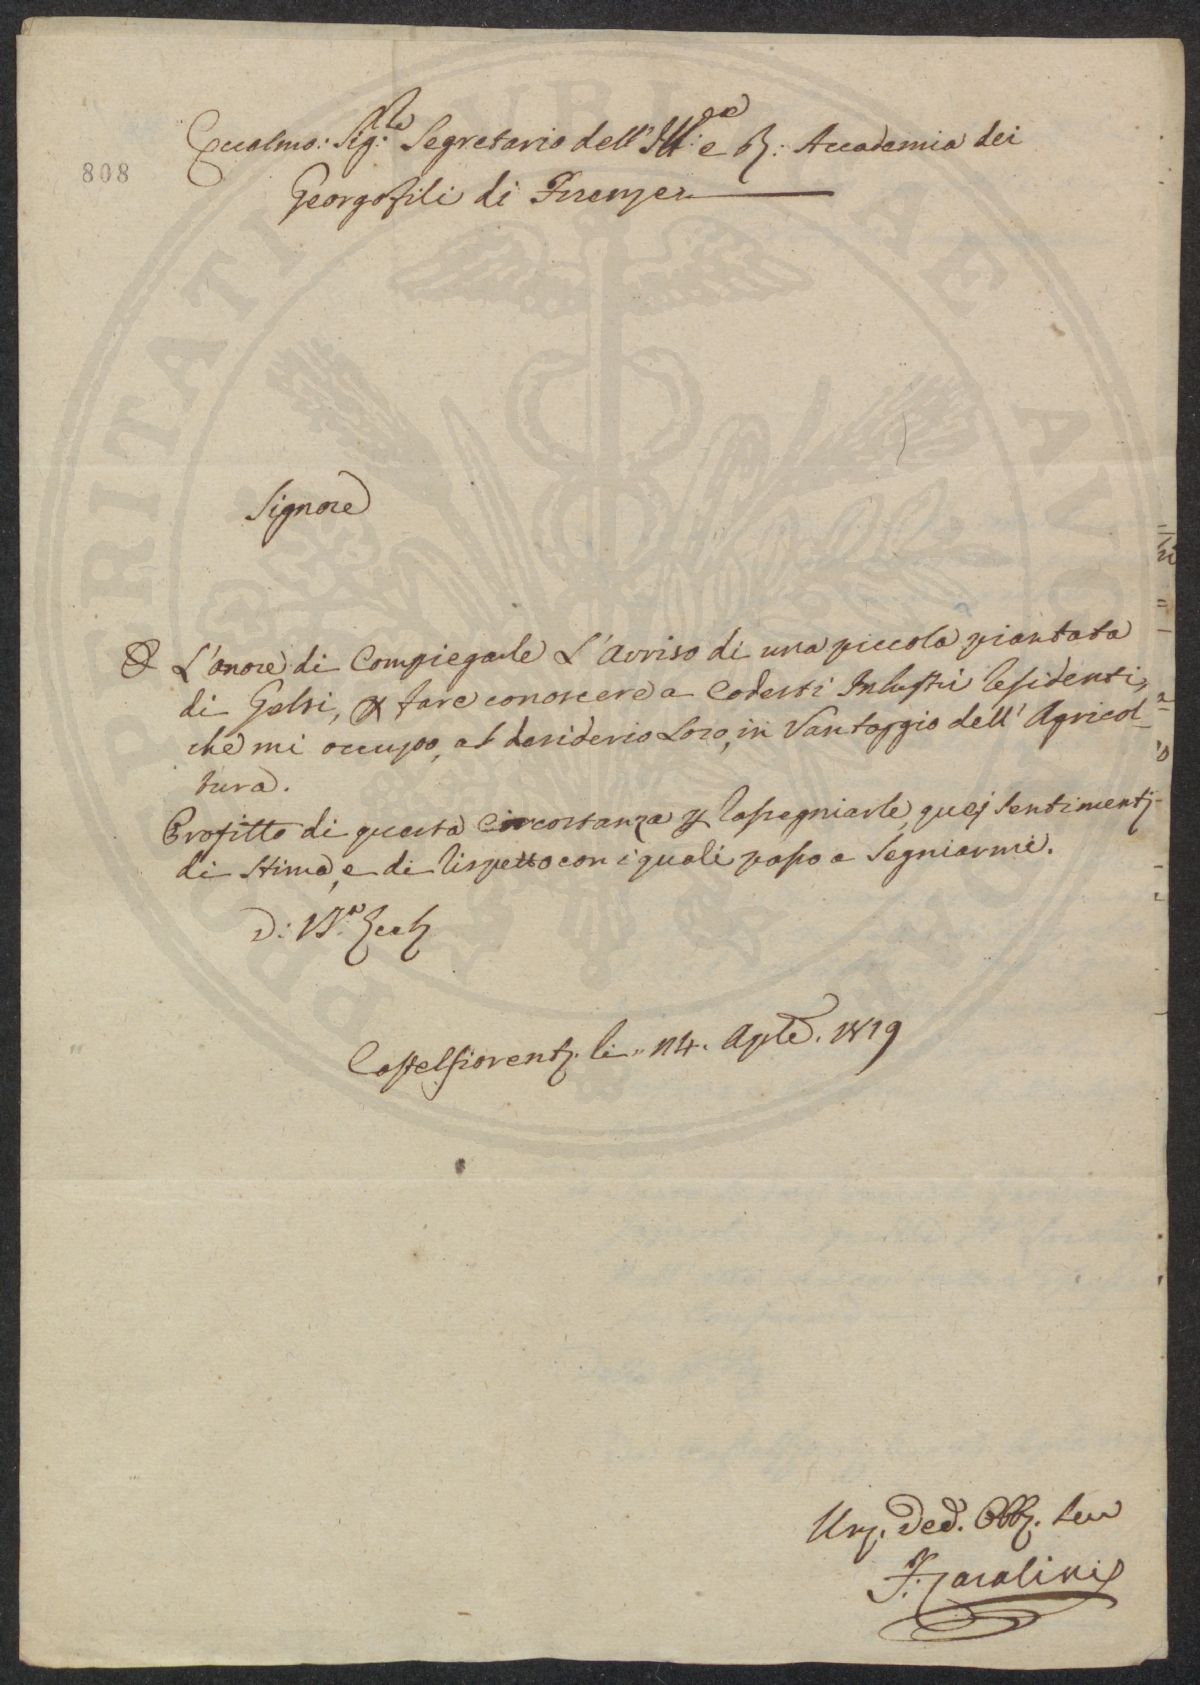 808
Eccelmo: Sig:re Segretario dell' Ill: e R: Accademia dei
Georgofili di Firenze
Signore
L'onore di Compiegarle L'avviso di una piccola piantata
di Gelsi, fare conoscere a Codesti Inlustri Residenti,
che mi occupo, al desiderio Loro, in Vantaggio dell' Agricol-
tura.
Profitto di questa Circostanza p Rassegniarle, quei Sentimenti
di Stima, e di Rispetto con i quali passo a Segniarmi.
D: V.
Castelfiorent. li 14. Aple. 1819
Um. Ded. Obb. Ser